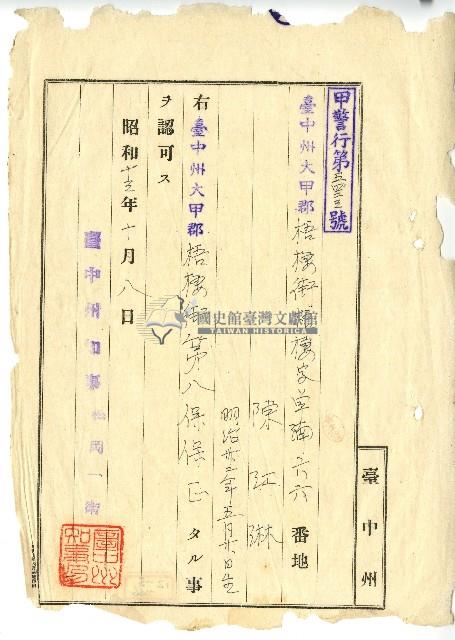 甲警行第五四三號
臺中州大甲郡梧棲街梧棲字草湳六六番地
陳江淋
明治卅三年五月廿日生
右臺中州大甲郡梧棲街第八保保正タル事
ヲ認可ス
昭和十三年十月八日
臺中州知事松岡一衛
臺中州
臺中州知事印
國史館臺灣文獻館
TAIWAN HISTORICA